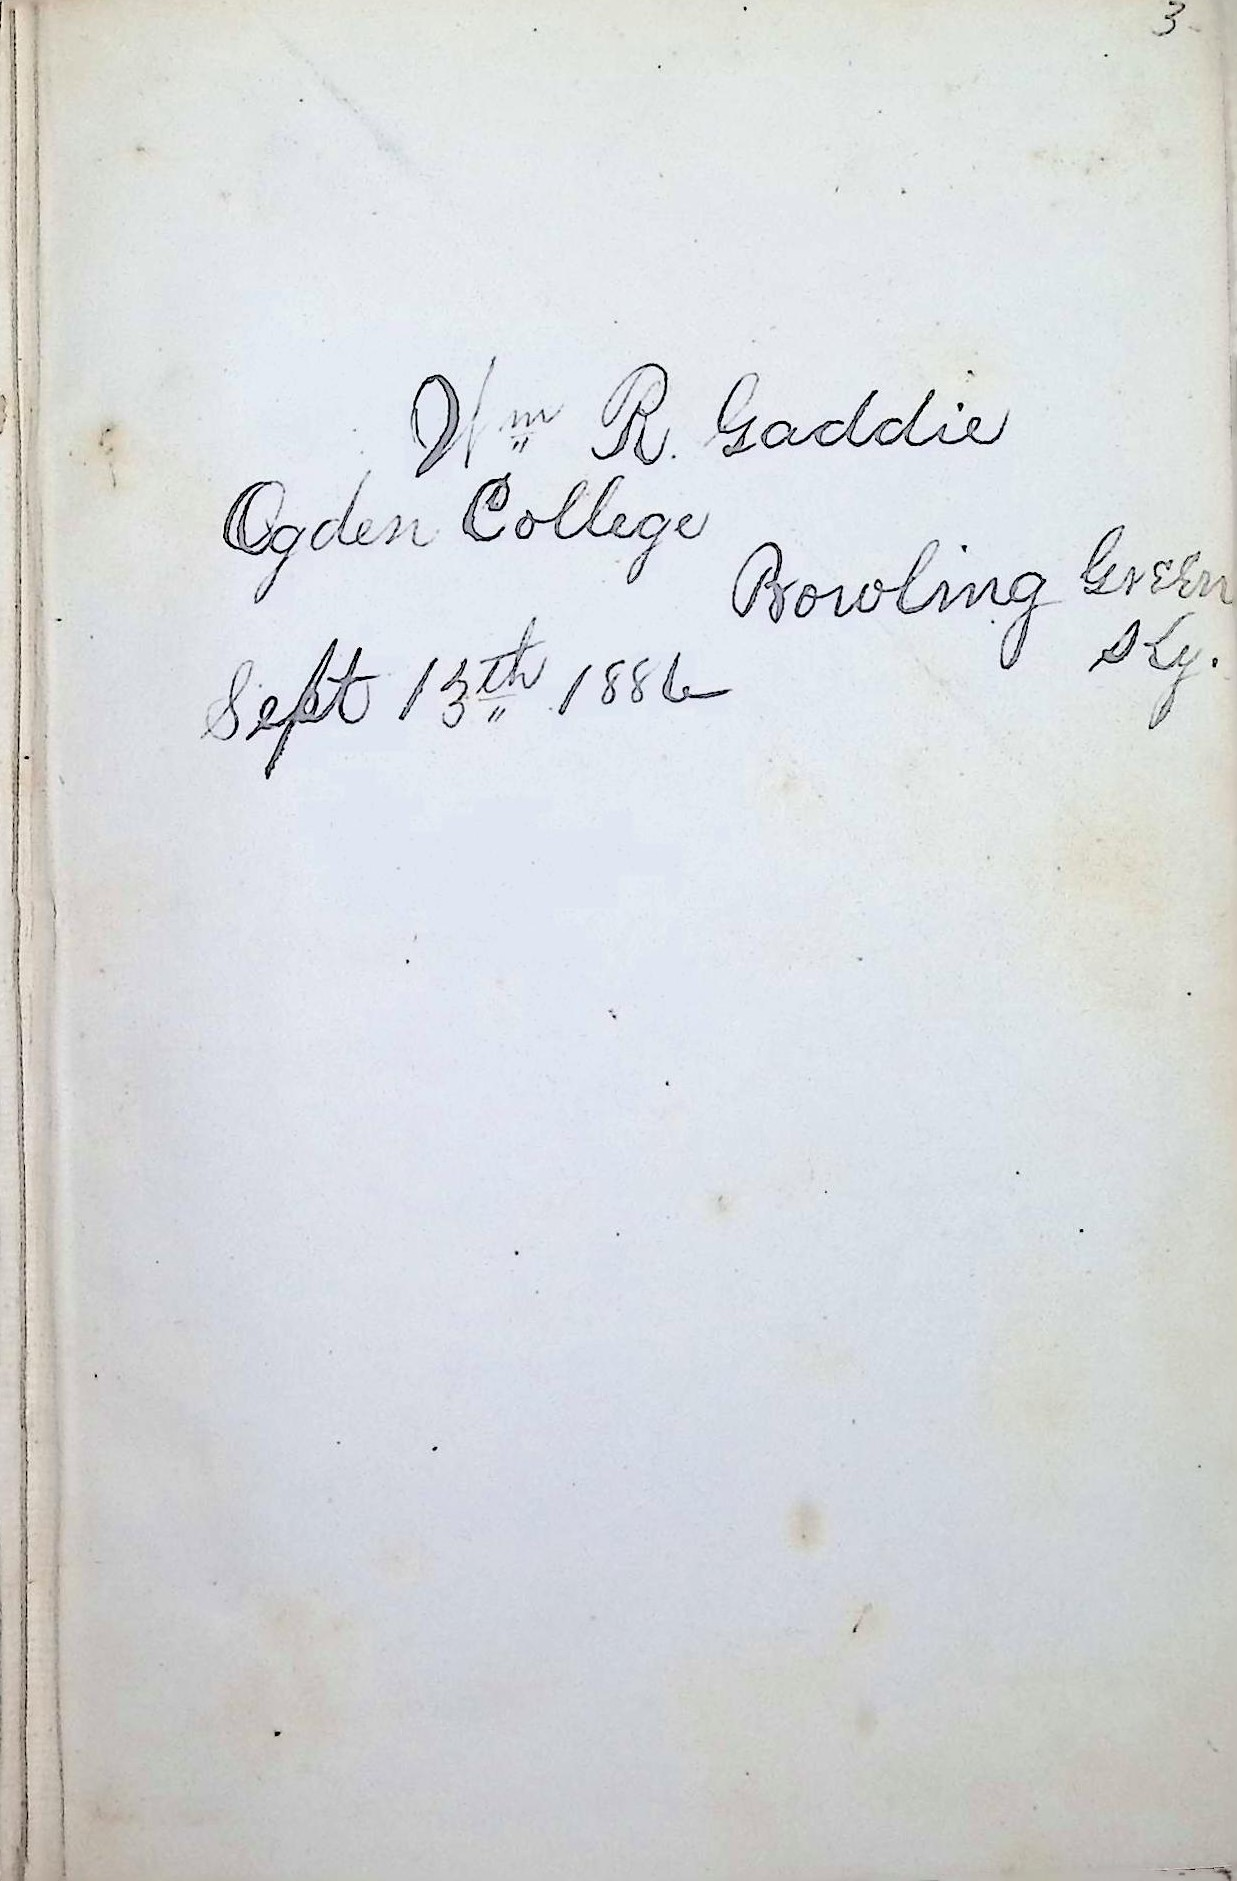 3
Wm R. Gaddie
Ogden College
Bowling Green
Ky.
Sept 13th 1886